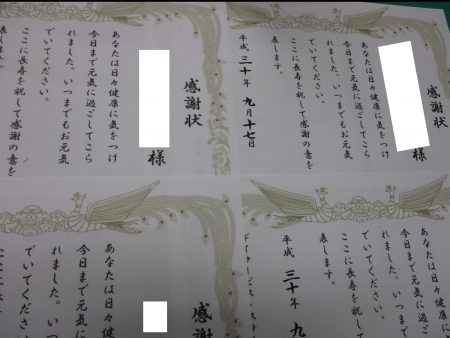 感謝状
様
あなたは日々健康に気をつけ
今日まで元気に過ごしてこら
れました。いつまでもお元気
でいてください。
ここに長寿を祝して感謝の意を
表します。
感謝状
様
あなたは日々健康に気をつけ
今日まで元気に過ごしてこら
れました。いつまでもお元気
でいてください。
ここに長寿を祝して感謝の意を
表します。
平成 三十年 九月十七日
感謝状
あなたは日々健
今日まで元気
れました。い
でいてくださ
あなたは日々健康
今日まで元気に過
れました。いつま
でいてください。
ここに長寿を祝し
表します。
平成 三十年 九